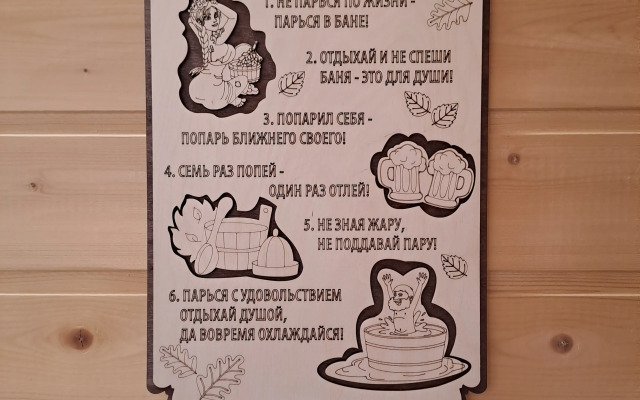 1. НЕ ПАРЬСЯ ПО ЖИЗНИ -
ПАРЬСЯ В БАНЕ!
2. ОТДЫХАЙ И НЕ СПЕШИ
БАНЯ - ЭТО ДЛЯ ДУШИ!
3. ПОПАРИЛ СЕБЯ -
ПОПАРЬ БЛИЖНЕГО СВОЕГО!
4. СЕМЬ РАЗ ПОПЕЙ -
ОДИН РАЗ ОТЛЕЙ!
5. НЕ ЗНАЯ ЖАРУ,
НЕ ПОДДАВАЙ ПАРУ!
6. ПАРЬСЯ С УДОВОЛЬСТВИЕМ
ОТДЫХАЙ ДУШОЙ,
ДА ВОВРЕМЯ ОХЛАЖДАЙСЯ!